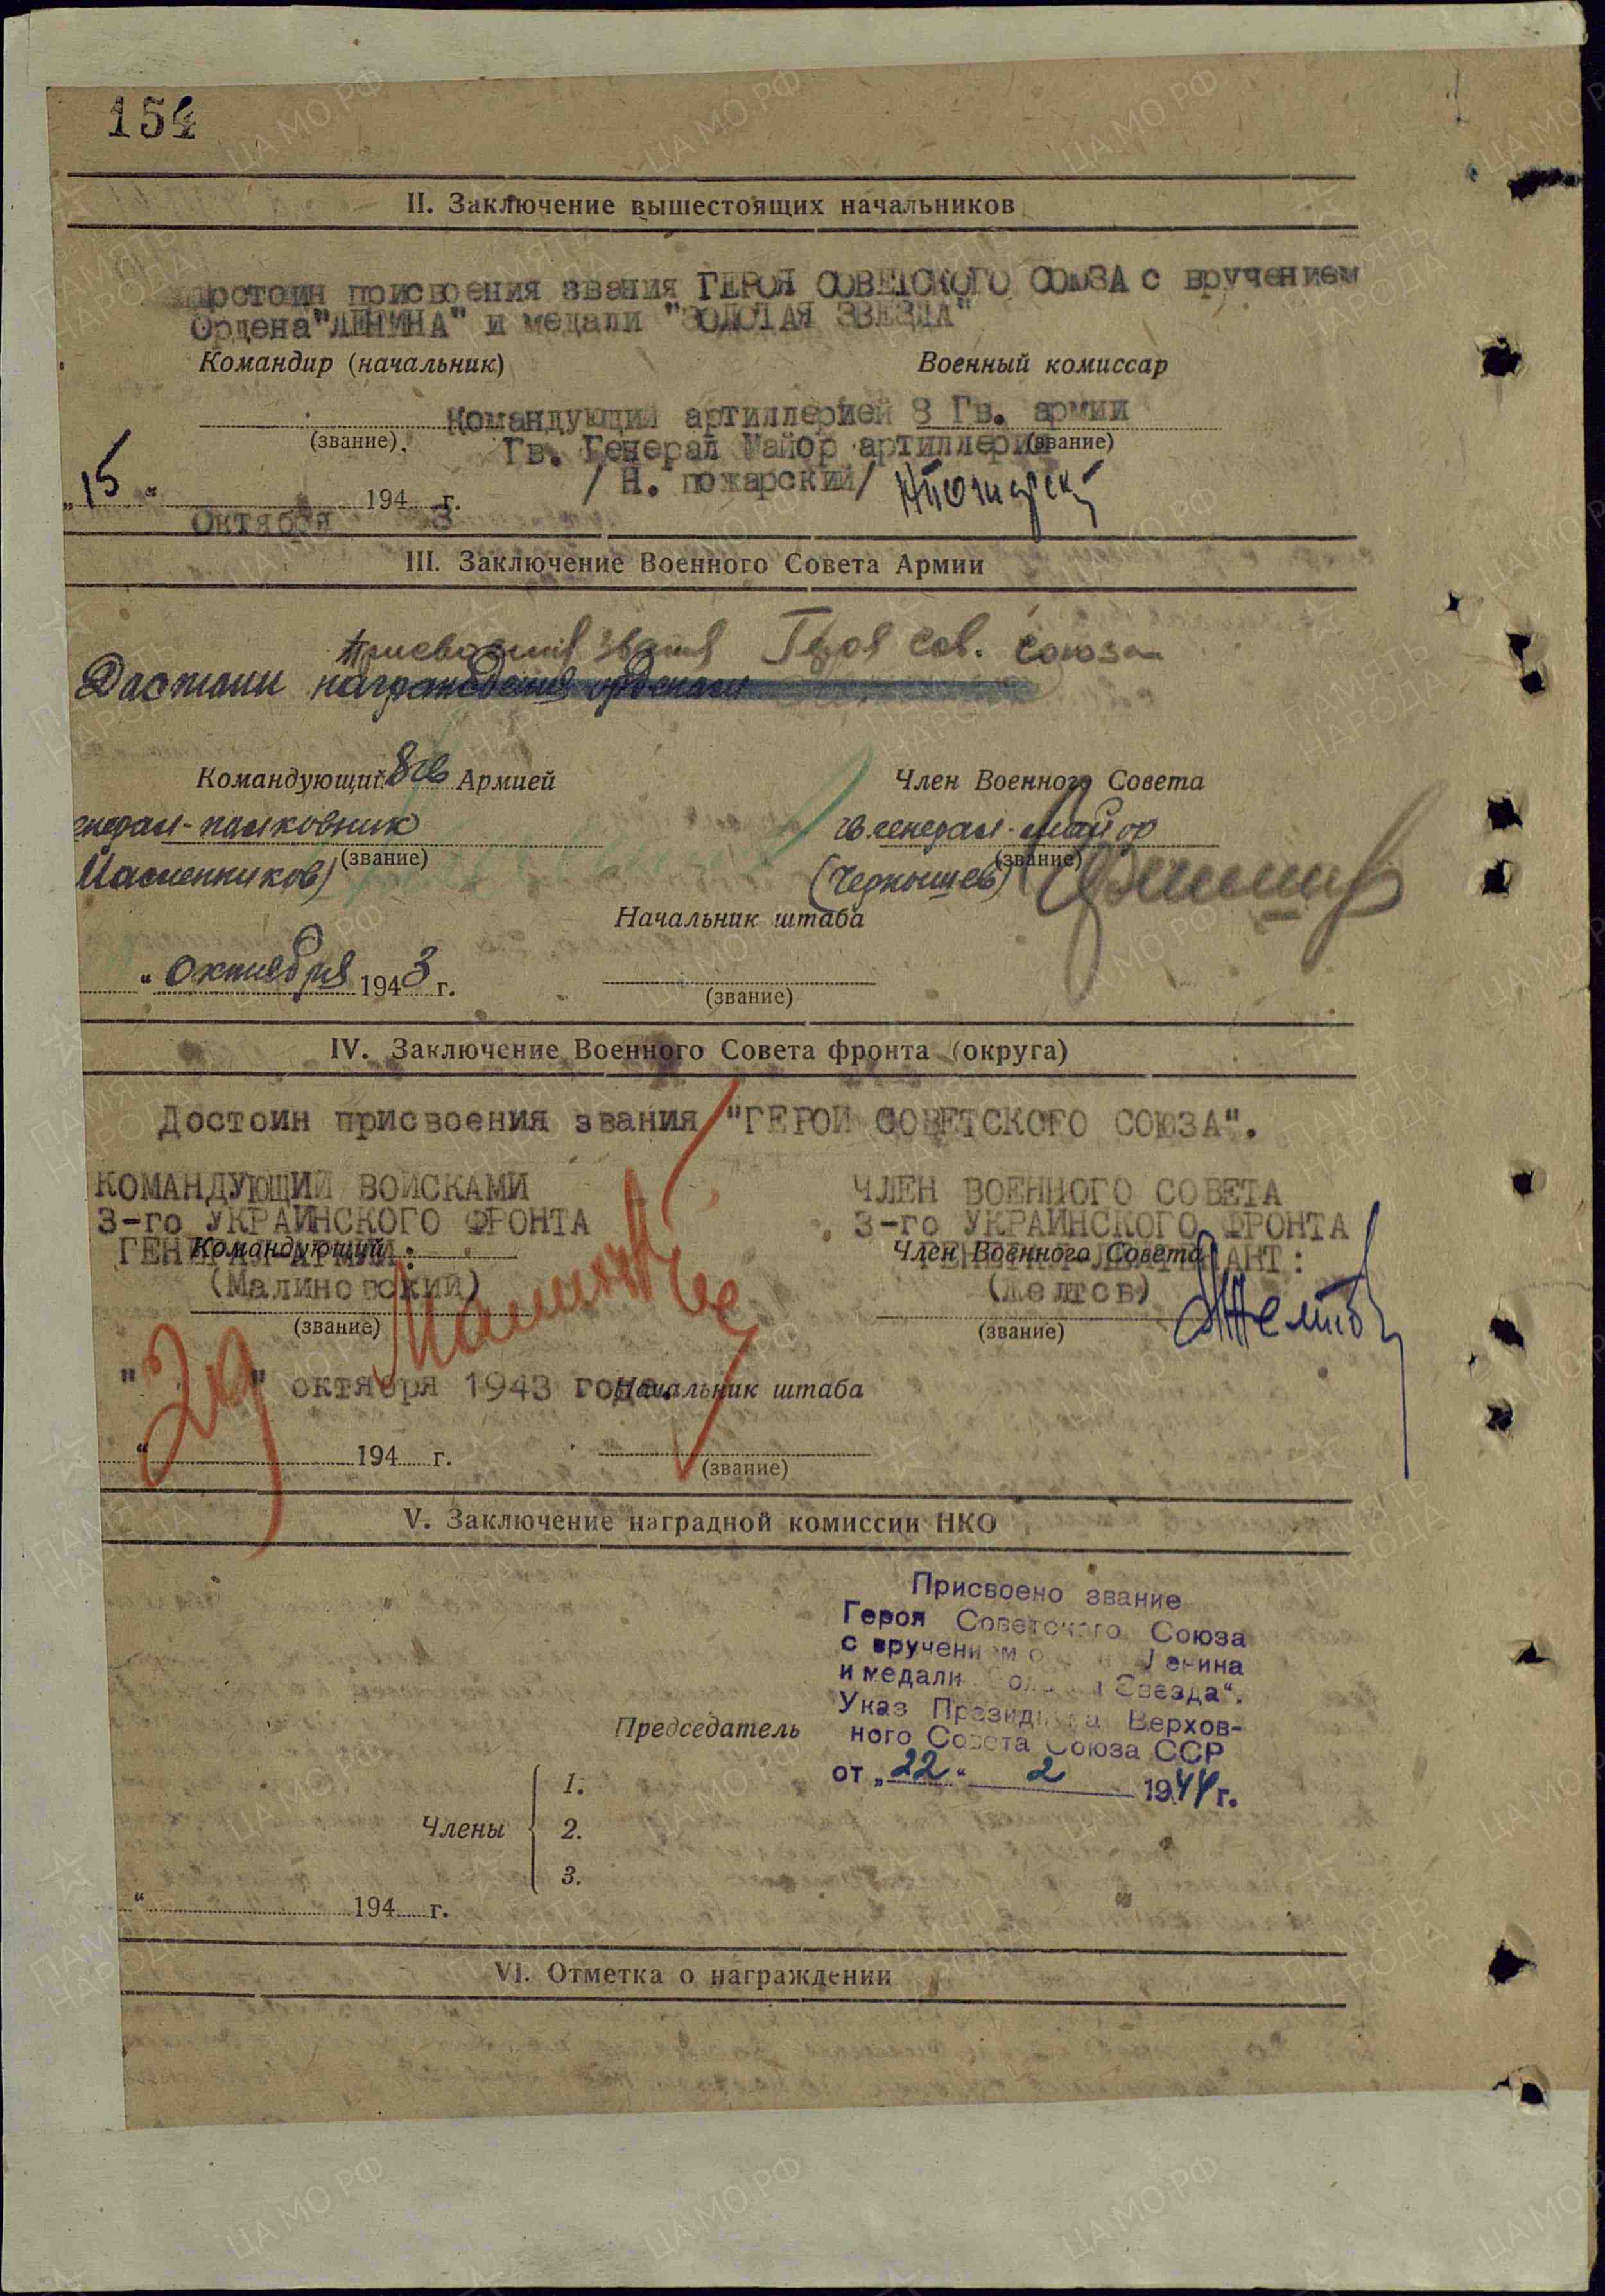 154
II. Заключение вышестоящих начальников
Достоин присвоения звания ГЕРОЯ СОВЕТСКОГО СОЮЗА с вручением
Ордена "ЛЕНИНА" и медали "ЗОЛОТАЯ ЗВЕЗДА"
Командир (начальник) Военный комиссар
Командующий артиллерией 8 Гв. армии
(звание) Гв. Генерал Майор артиллерии (звание)
/Н. пожарский/
„15“ Октября 1943 г.
III. Заключение Военного Совета Армии
присвоения звания Героя Сов. Союза
Достоин награждения орденом
Командующий 8 гв Армией Член Военного Совета
енерал-полковник гв генерал-майор
(звание) (звание)
Масленников) (Чернышев)
Начальник штаба
“ октября 1943 г.
(звание)
IV. Заключение Военного Совета фронта (округа)
Достоин присвоения звания "ГЕРОЙ СОВЕТСКОГО СОЮЗА".
КОМАНДУЮЩИЙ ВОЙСКАМИ ЧЛЕН ВОЕННОГО СОВЕТА
3-го УКРАИНСКОГО ФРОНТА 3-го УКРАИНСКОГО ФРОНТА
ГЕНЕРАЛ АРМИИ: ГЕНЕРАЛ-ЛЕЙТЕНАНТ:
Командующий Член Военного Совета
(Малиновский) (Желтов)
(звание) (звание)
"29" октября 1943 года. Начальник штаба
“ 194 г.
(звание)
V. Заключение наградной комиссии НКО
Присвоено звание
Героя Советского Союза
с вручением ордена Ленина
и медали „Золотая Звезда“.
Указ Президиума Верхов-
ного Совета Союза ССР
от „22“ 2 1944 г.
Председатель
Члены
1.
2.
3.
“ 194 г.
VI. Отметка о награждении
ЦА МО РФ
ПАМЯТЬ НАРОДА